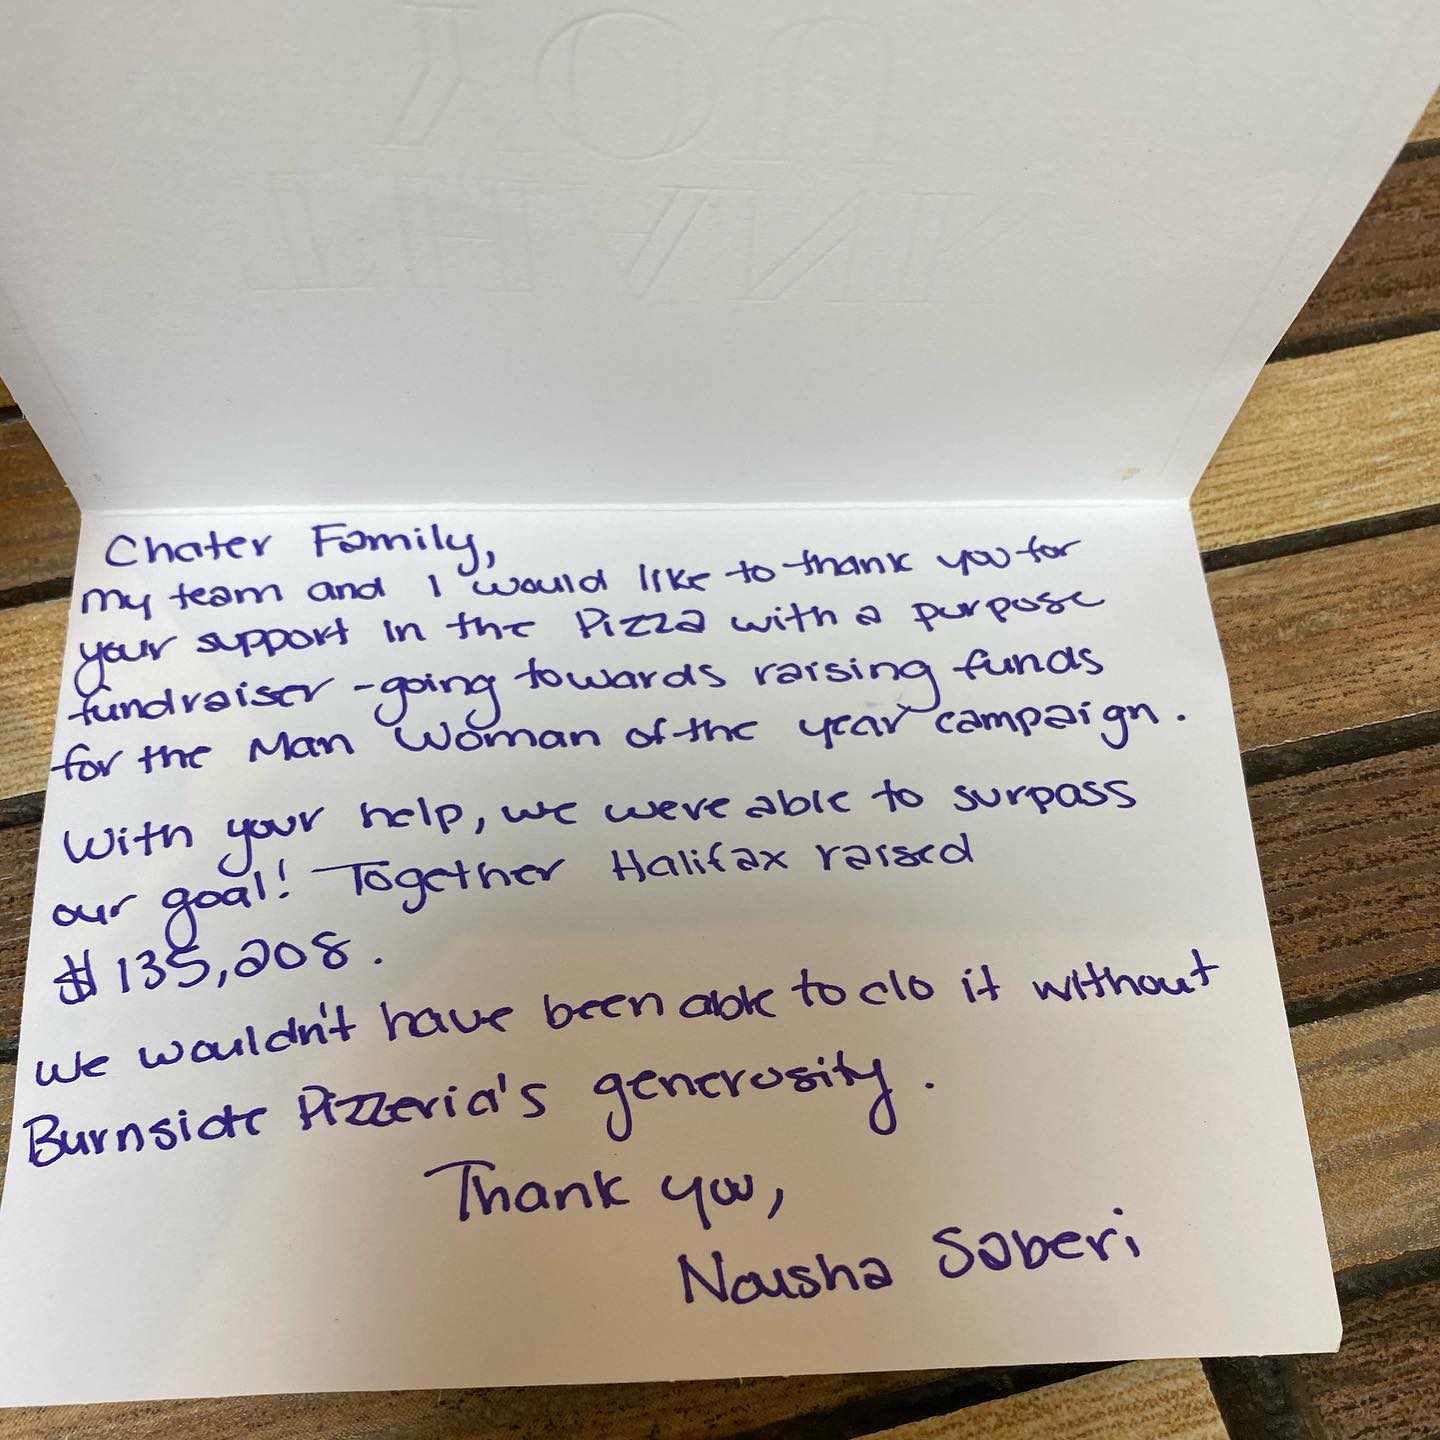 THANK
YOU
Chater Family,
My team and I would like to thank you for
your support in the Pizza with a purpose
fundraiser - going towards raising funds
for the Man Woman of the year campaign.
With your help, we were able to surpass
our goal! Together Halifax raised
$135,208.
We wouldn't have been able to do it without
Burnside Pizzeria's generosity.
Thank you,
Nousha Saberi